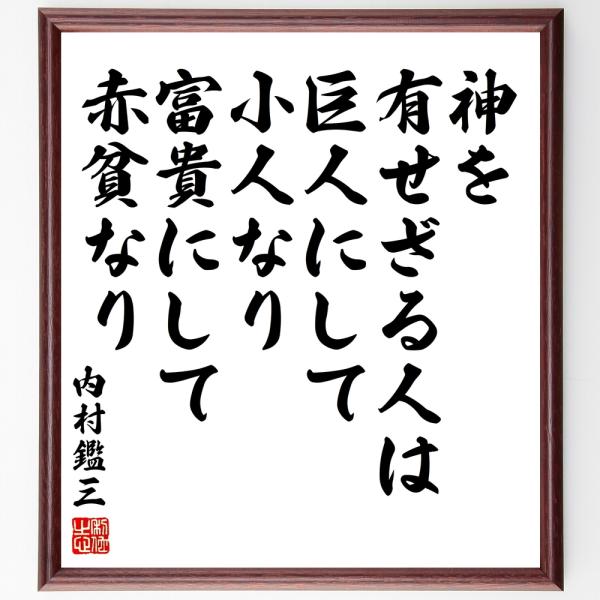 神を
有せざる人は
巨人にして
小人なり
富貴にして
赤貧なり
内村鑑三